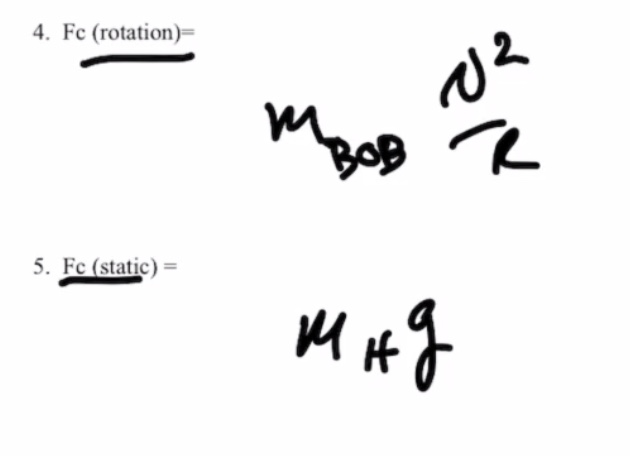 4. Fc (rotation)=
m_BOB v²/R
5. Fc (static) =
m_H g